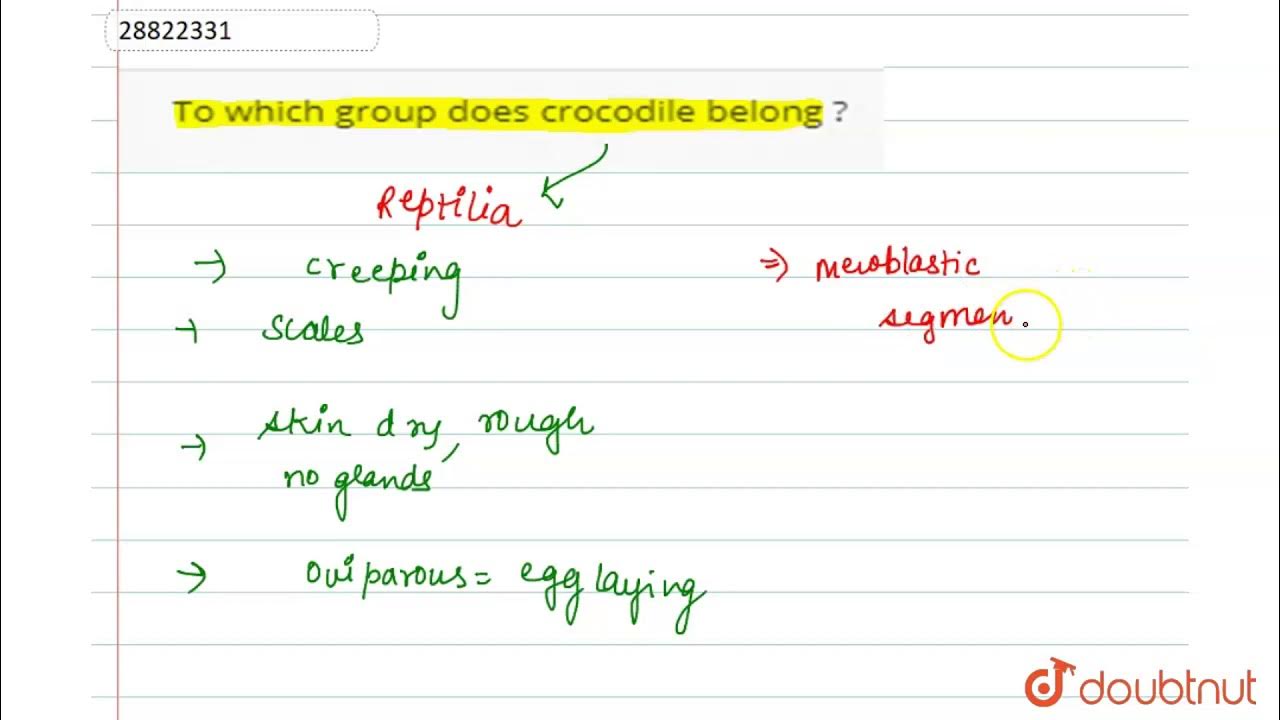 28822331
To which group does crocodile belong ?
Reptilia
→ creeping
→ Scales
→ skin dry, rough
no glands
→ Oviparous = egg laying
⇒ meroblastic
segmen
doubtnut